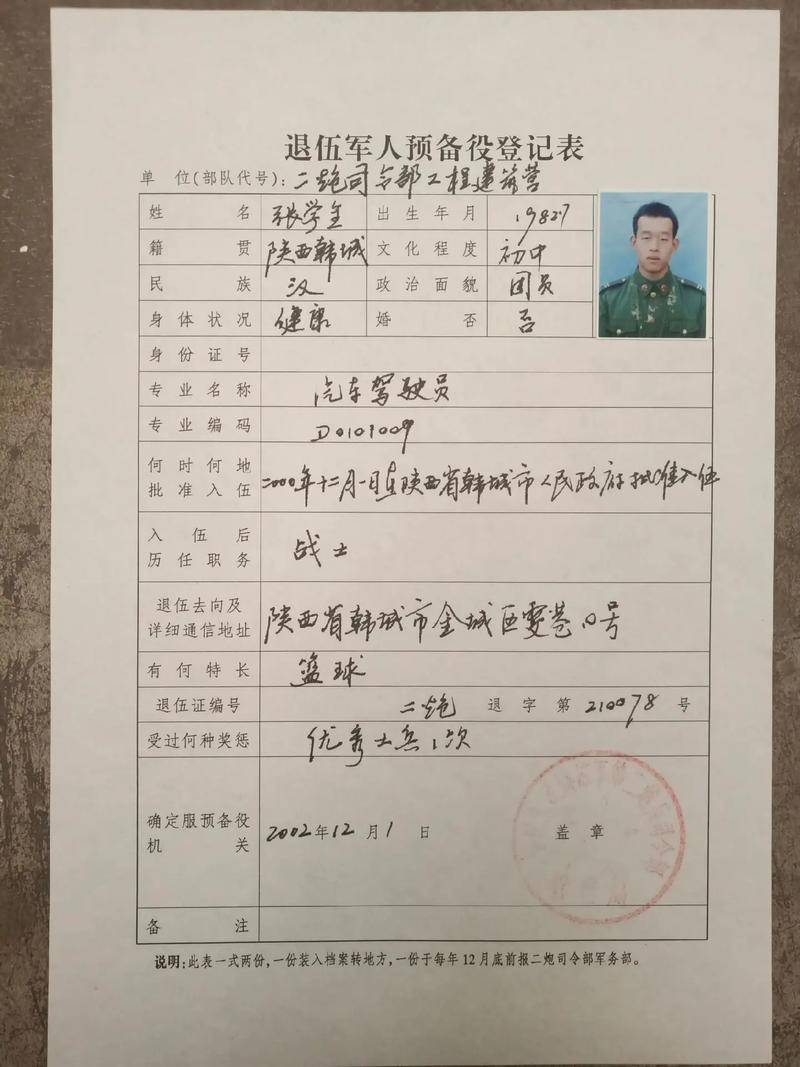 退伍军人预备役登记表
单 位(部队代号): 二炮司令部工程建筑营
姓 名 张学全 出生年月 1982.7
籍 贯 陕西韩城 文化程度 初中
民 族 汉 政治面貌 团员
身体状况 健康 婚 否 否
身份证号
专业名称 汽车驾驶员
专业编码 D0101009
何时何地
批准入伍 2000年十二月一日在陕西省韩城市人民政府批准入伍
入 伍 后
历任职务 战士
退伍去向及
详细通信地址 陕西省韩城市金城区 巷 号
有何特长 篮球
退伍证编号 二炮 退 字 第 210078 号
受过何种奖惩 优秀士兵1次
确定服预备役
机 关 2002年12月1日 盖 章
备 注
说明:此表一式两份,一份装入档案转地方,一份于每年12月底前报二炮司令部军务部。